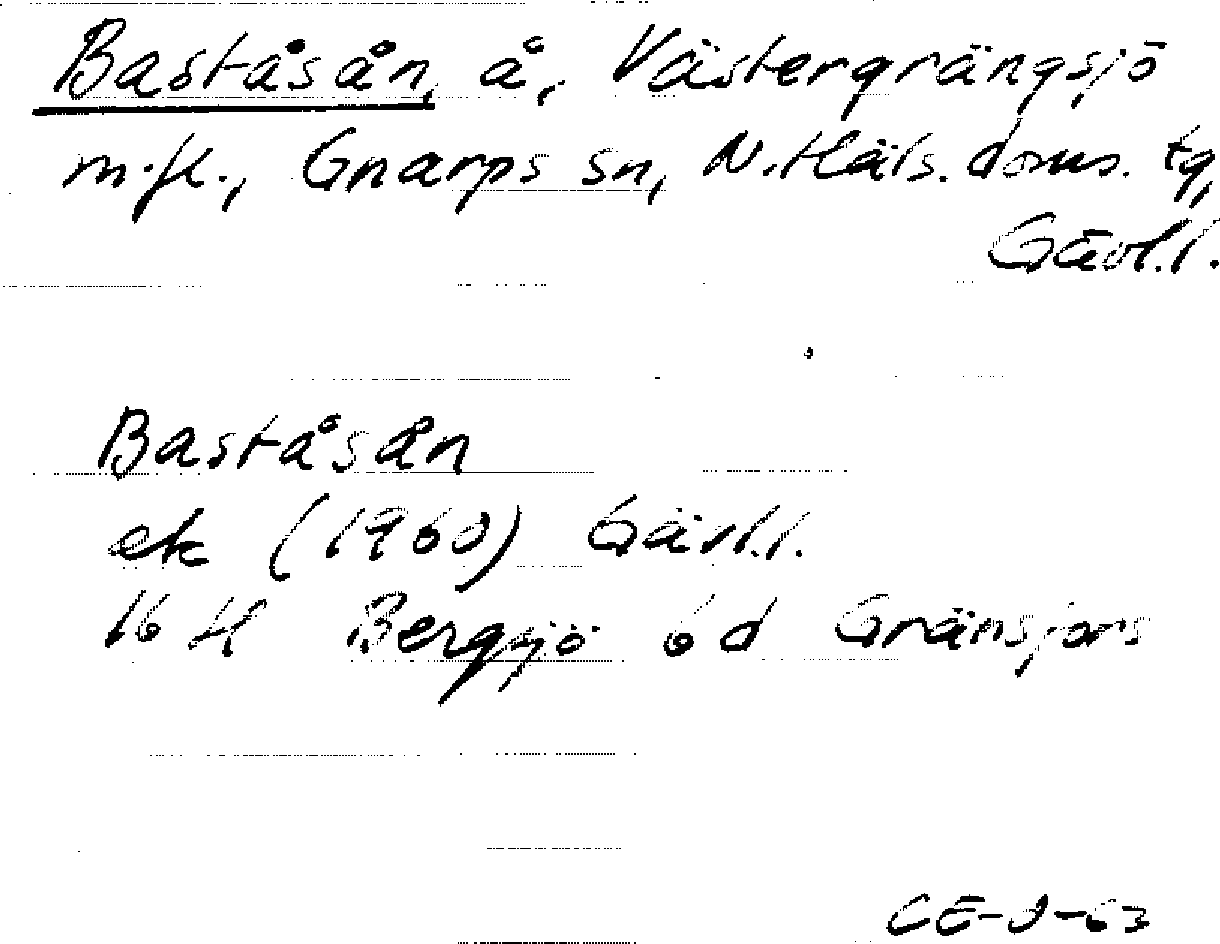 Baståsån, å, Västergrängsjö
m.fl., Gnarps sn, N. Häls. doms. tg,
Gävl.l.
Baståsån
ek (1960) Gävl.l.
16 H Bergsjö 6 d Gränsjörs
CE-J-63